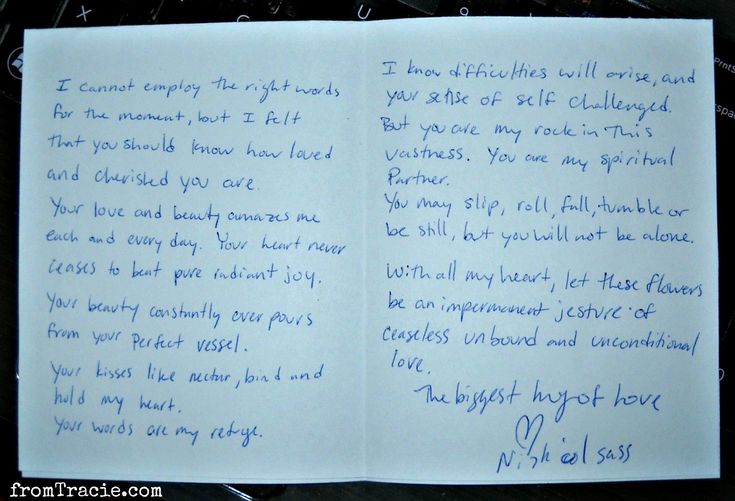 I cannot employ the right words
for the moment, but I felt
that you should know how loved
and cherished you are.
Your love and beauty amazes me
each and every day. Your heart never
ceases to beat pure radiant joy.
Your beauty constantly over pours
from your perfect vessel.
Your kisses like nectar, bind and
hold my heart.
Your words are my refuge.
I know difficulties will arise, and
your sense of self challenged.
But you are my rock in This
vastness. You are my spiritual
Partner.
You may slip, roll, fall, tumble or
be still, but you will not be alone.
With all my heart, let these flowers
be an impermanent jesture of
ceaseless unbound and unconditional
love.
The biggest hug of Love
sass
fromTracie.com
X
C